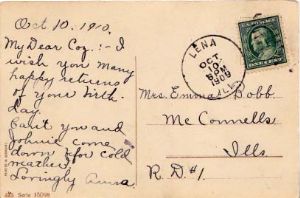 Oct 10, 1910.
My Dear Coz:- I
wish you many
happy returns
of your birth
day.
Can't you and
Johnie come
down for cold
weather
Lovingly Anna.
LENA
OCT.
10
8 PM
1909
ILL.
Mrs. Emma Bobb.
Mc Connells
Ills
R.D. #1.
Serie 1509B